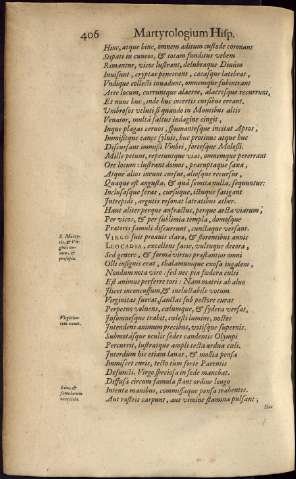 406
Martyrologium Hisp.
Hinc, atque hinc, omnem aditum custode coronant
Stipati in cuneos, & totam funditus urbem
Rimantur, vicos lustrant, delubraque Divûm
Invisunt, cryptas penetrant, cæcasque latebras,
Undique collecti invadunt, omnemque subintrant
Arte locum, currumque alacres, alacresque recurrunt,
Et nunc huc, inde huc incertis cursibus errant.
Umbrosos veluti si quando in Montibus altis
Venator, multâ saltus indagine cingit,
Inque plagas cervos, spumantesque incitat Apros;
Immissique canes sylvis, huc procinus atque huc
Discursant immissi Umbri, ferocesque Molossi.
Mille petunt, repetuntque vias, omnemque pererrant
Ore locum: lustrant dumos, præruptaque saxa,
Atque alios intrant cursus, aliosque recursus,
Quaque est angusta, & quà semita nulla, sequuntur:
Inclusasque feras, cursuque, ictuque fatigant
Intrepidi, argutis resonat latratibus æther.
Haut aliter perque anfractus, perque arcta viarum,
Per vicos, & per sublimia templa, domosque
Præteris famuli discurrunt, cunctaque versant.
VIRGO fuit primævis clara, & florentibus annis
LEOCADIA, excellens facie, vultuque decora,
Sed genere, & forma virtus præstantior omni
Olli insignis erat, thalamumque exosa jugalem,
Nondum nota viro: sed nec pia fœdera culti
Est animus perferre tori: Nam matris ab alvo
Illuct inconcussum, & ineluctabile votum
Virginitas sacrat, sanctas sub pectore curat
Perpetuo volvens, calumque, & sydera versat,
Insomnesque trahit, cœlesti lumine, noctes
Intendens animum precibus, votisque supernis.
Submotasque oculis sedes candentis Olympi
Percurrit, lustratque ampli tecta ardua cœli.
Interdum his etiam lanas, & mollia pensa
Immiscet curis, tecto tum forte Parentis
Defuncti. Virgo speciosa in sede manebat.
Diffusa circum famula stant ordine longo
Intenta manibus, commissaque pensa trahentes.
Aut rastris carpunt, aut vimine stamina pulsant,
S. Marty-
ris, & Vir-
ginis
Virginita-
tem
famularum